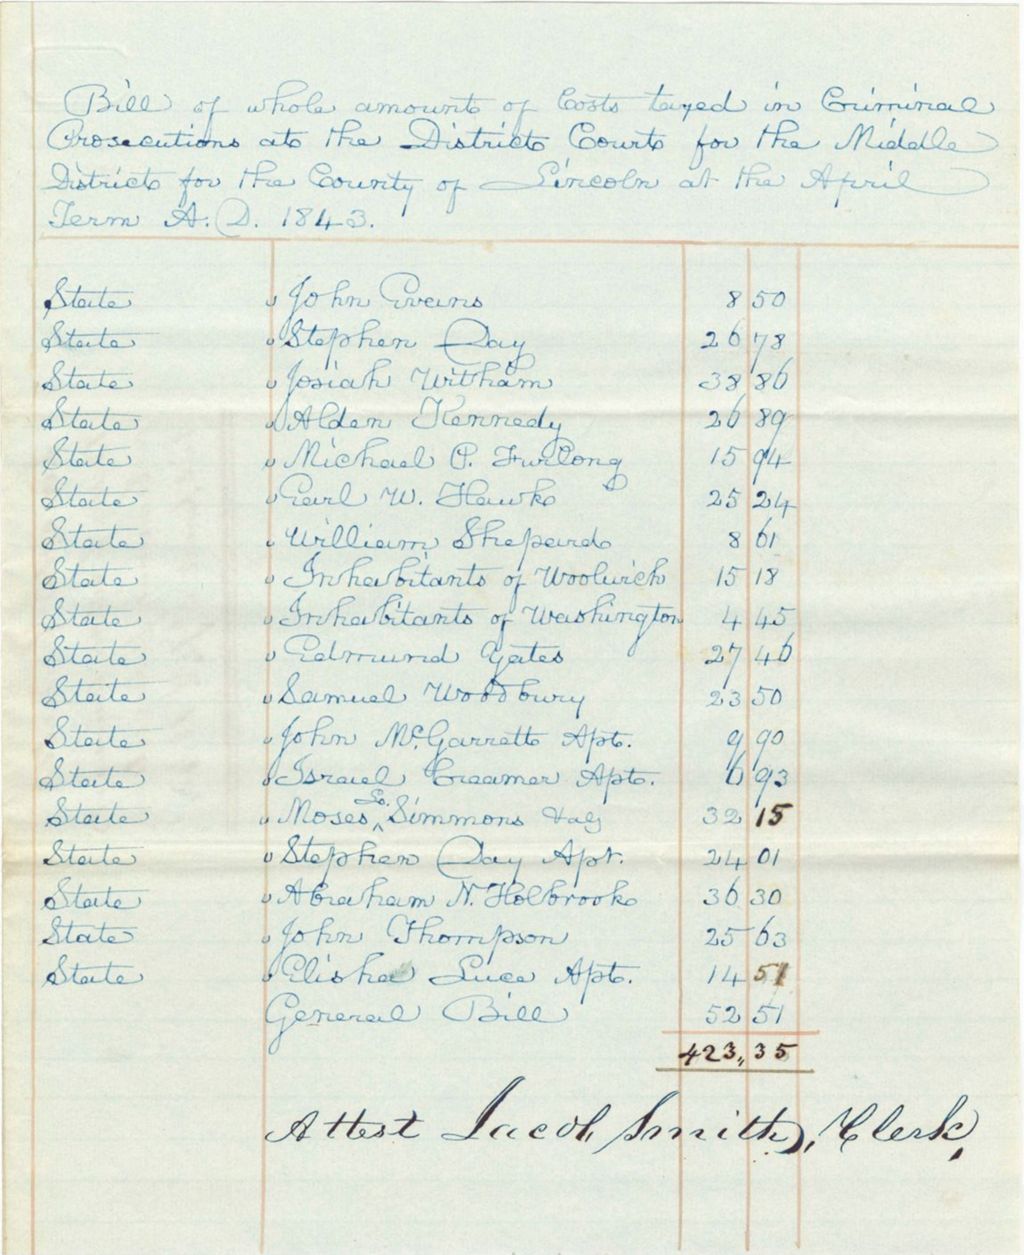 Bill of whole amount of Costs taxed in Criminal
Prosecutions at the District Court for the Middle
District for the County of Lincoln at the April
Term A. D. 1843.
State v John Evans 8 50
State v Stephen Day 26 78
State v Josiah Witham 38 86
State v Alden Kennedy 26 89
State v Michael P. Furlong 15 94
State v Earl W. Hawk 25 24
State v William Shepard 8 61
State v Inhabitants of Woolwich 15 18
State v Inhabitants of Washington 4 45
State v Edmund Yates 27 46
State v Samuel Woodbury 23 50
State v John McGarrett Apt. 9 90
State v Israel Creamer Apt. 6 93
State v Moses Simmons 32 15
State v Stephen Day Apt. 24 01
State v Abraham N. Holbrook 36 30
State v John Thompson 25 63
State v Elisha Luce Apt. 14 51
General Bill 52 51
423,,35
Attest Jacob Smith, Clerk,